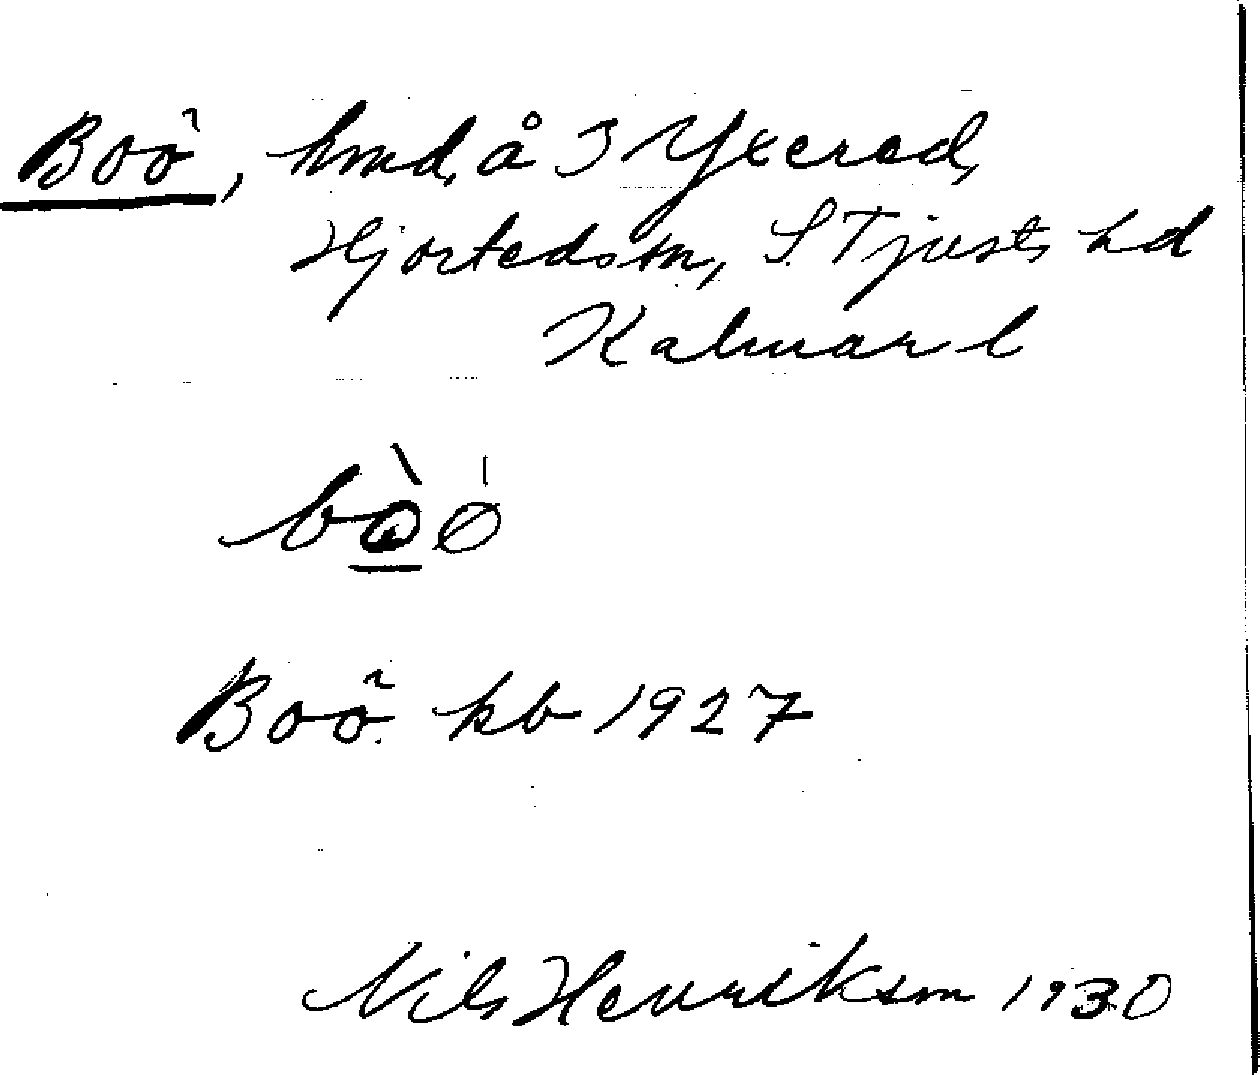 Boö, hmd, å 3 Yxered,
Hjorteds sn, S. Tjusts hd
Kalmar l
bò̱ ǿ
Boö kb 1927
Nils Henrikson 1930